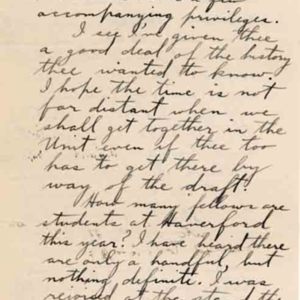 accompanying privileges.
I see I've given thee
a good deal of the history
thee wanted to know.
I hope the time is not
far distant when we
shall get together in the
Unit even if thee too
has to get there by
way of the draft!
How many fellows are
students at Haverford
this year? I have heard there
are only a handful, but
nothing definite. I was